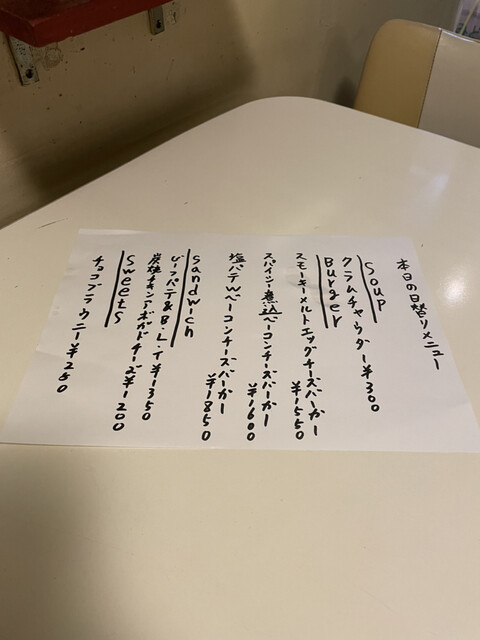 本日の日替りメニュー
Soup
クラムチャウダー ¥300
Burger
スモーキーメルトエッグチーズバーガー ¥1550
スパイシー煮込ベーコンチーズバーガー ¥1600
塩パテWベーコンチーズバーガー ¥1850
Sandwich
ビーフパテ&B.L.T ¥1350
炭焼チキンアボガドチーズ ¥1200
Sweets
チョコブラウニー ¥250